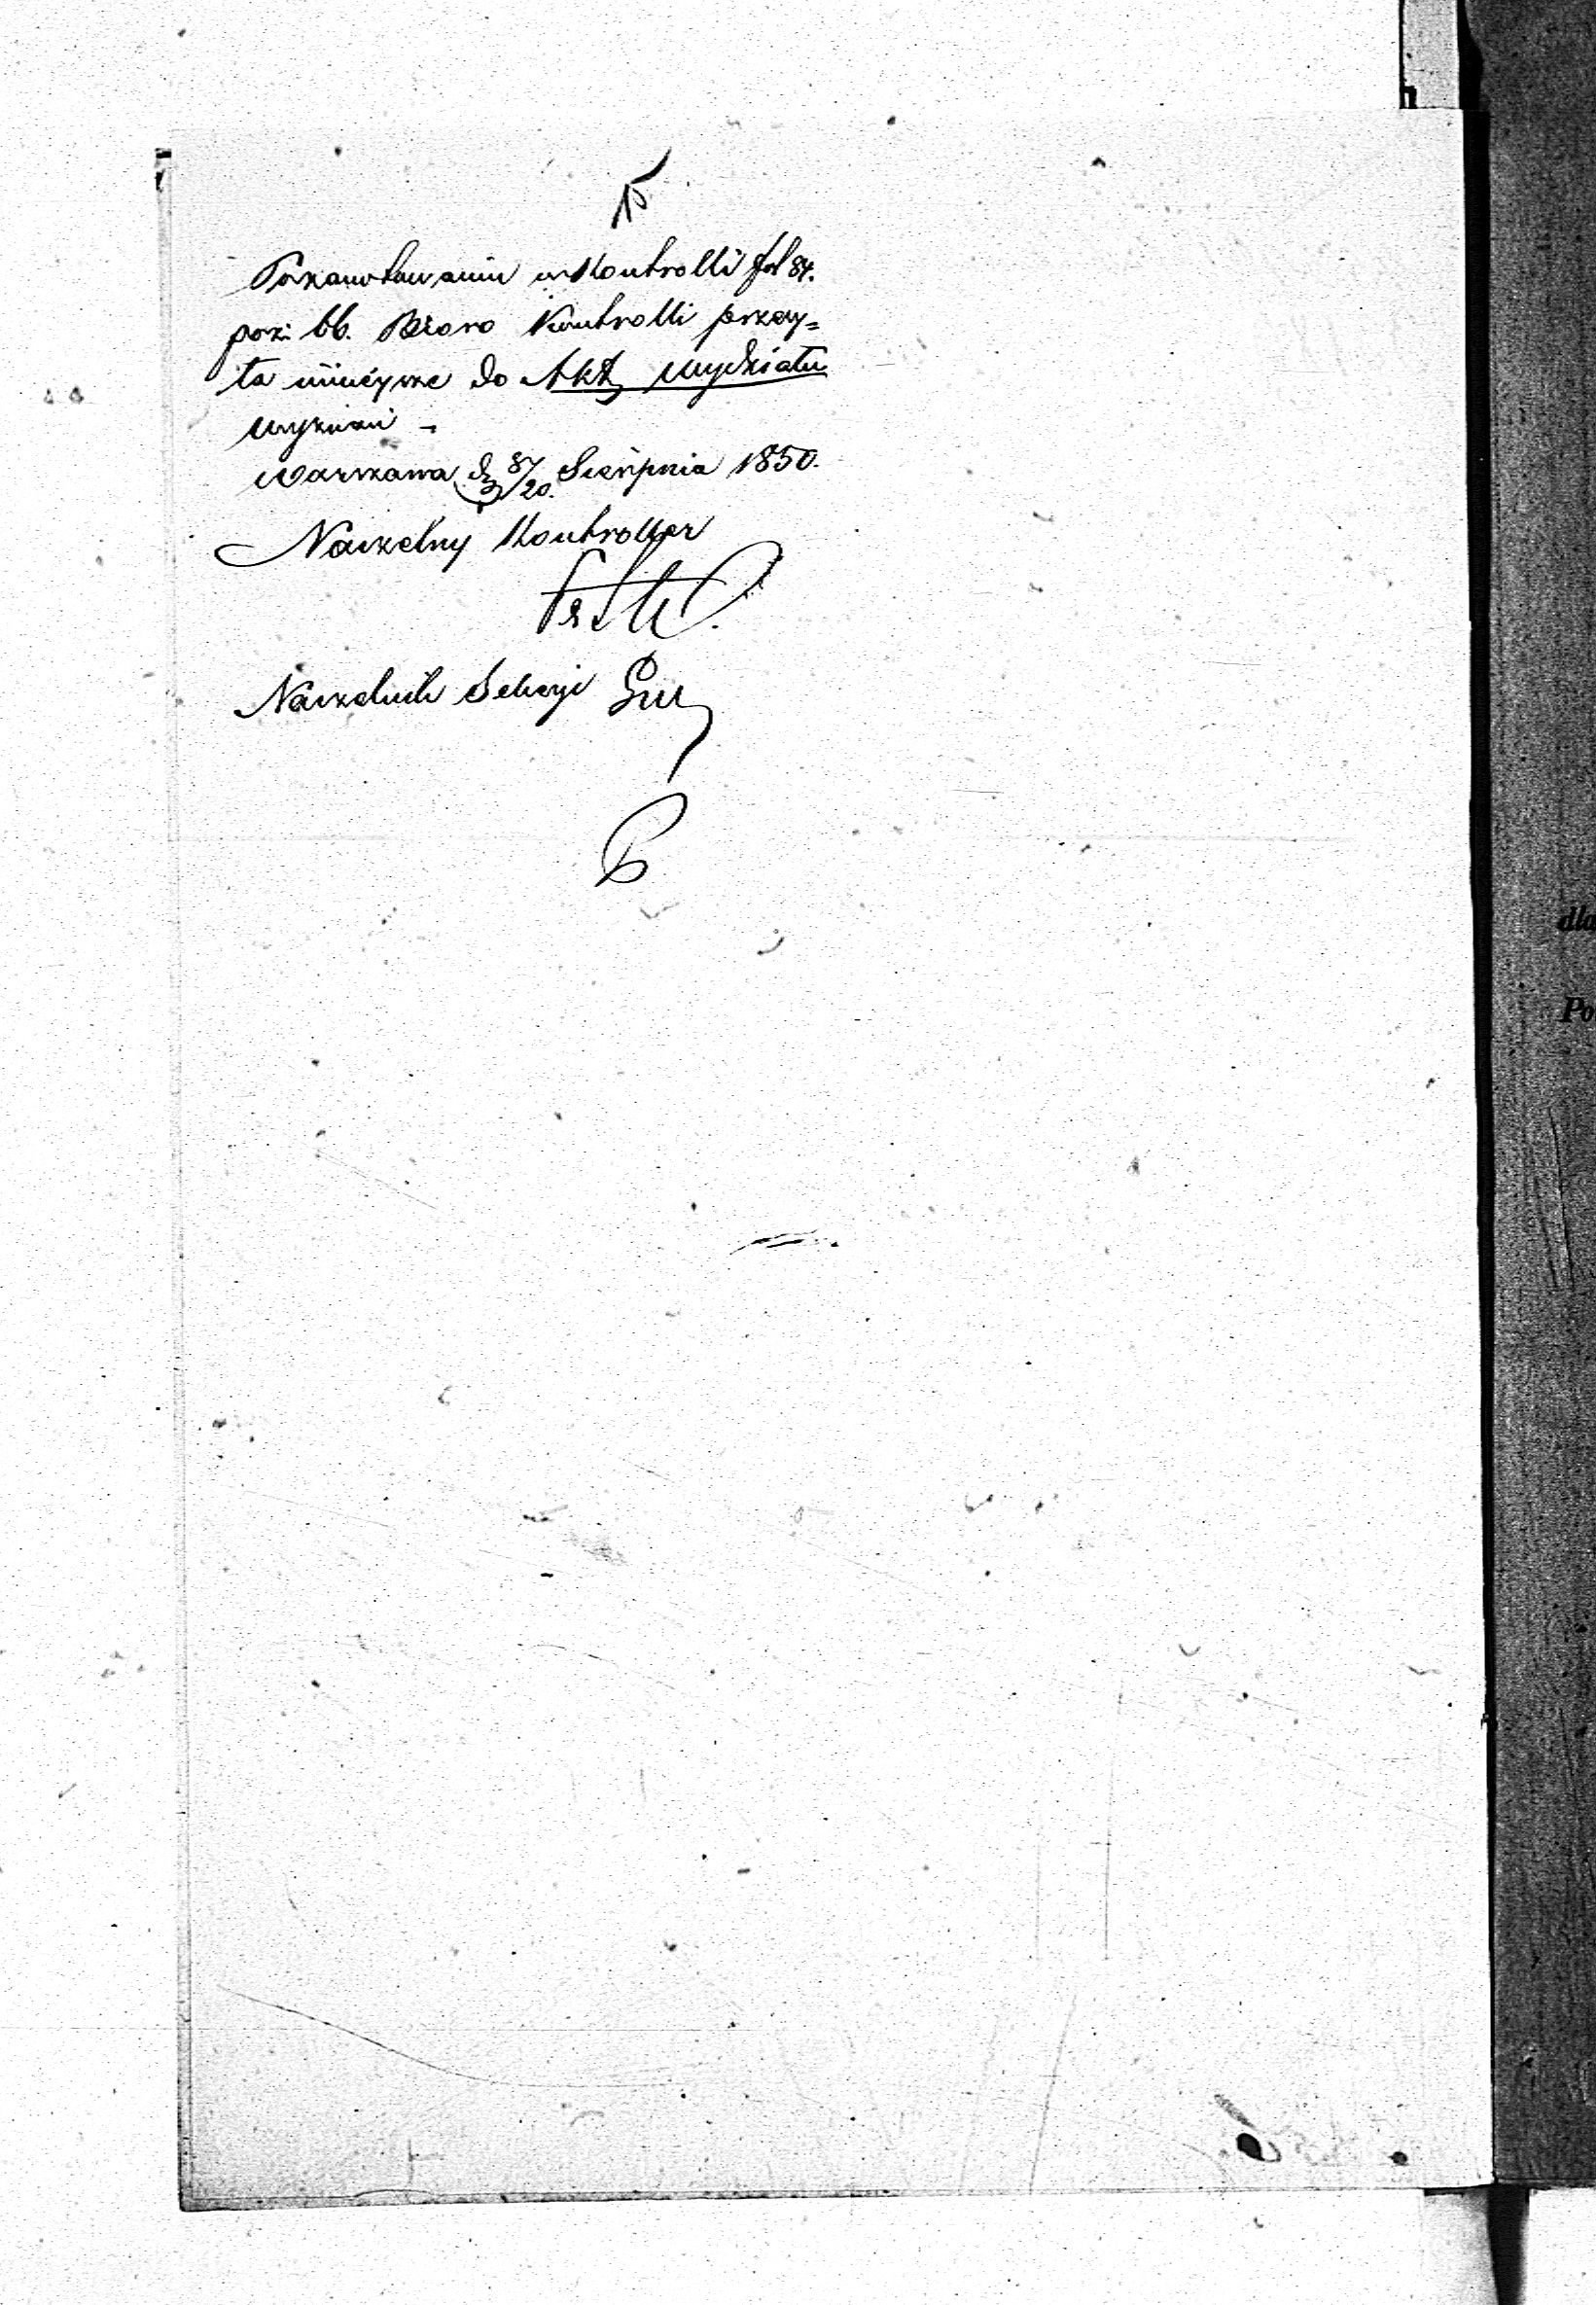 Po zanotowaniu w Kontrolli fol 84.
poz: 66. Bióro Kontrolli przesy=
ła niniejsze do Akt Wydziału
Wyznań -
Warszawa d. 8/20. Sierpnia 1850.
Naczelny Kontroller
Naczelnik Sekcyi
dla
Po